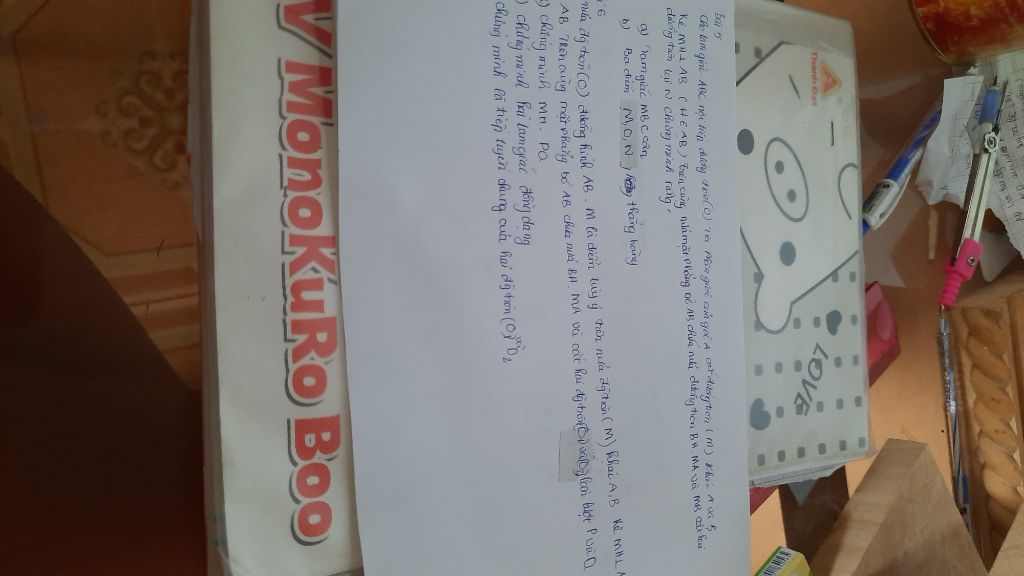 Bài 5
Cho tam giác ABC nội tiếp đường tròn (O) Tia phân giác của góc A cắt đường tròn (M) khác A và B
Kẻ MH⊥AB (H∈AB) Trên cùng nửa mặt phẳng bờ AB chứa nửa đường tròn BH. MA và MB cắt hai
đường tròn tại N chứng minh rằng,
a) Tam giác MBC cân
b) Ba điểm M,O,N thẳng hàng
nửa đg tròn (O) đường kính AB. M là điểm tuỳ ý trên nửa đg tròn (M) khác A,B Kẻ MH⊥
AB Trên cùng mặt phẳng bờ AB chứa nửa BH. MA và cắt hai đg tròn lần lượt P và Q
chứng minh MH. PQ
chứng minh hai tam giác đồng dạng
chứng minh là tiếp tuyến chung của hai đg tròn (O)1 và O2
V MONOKURO BOO
Thành Đạt
LOVE